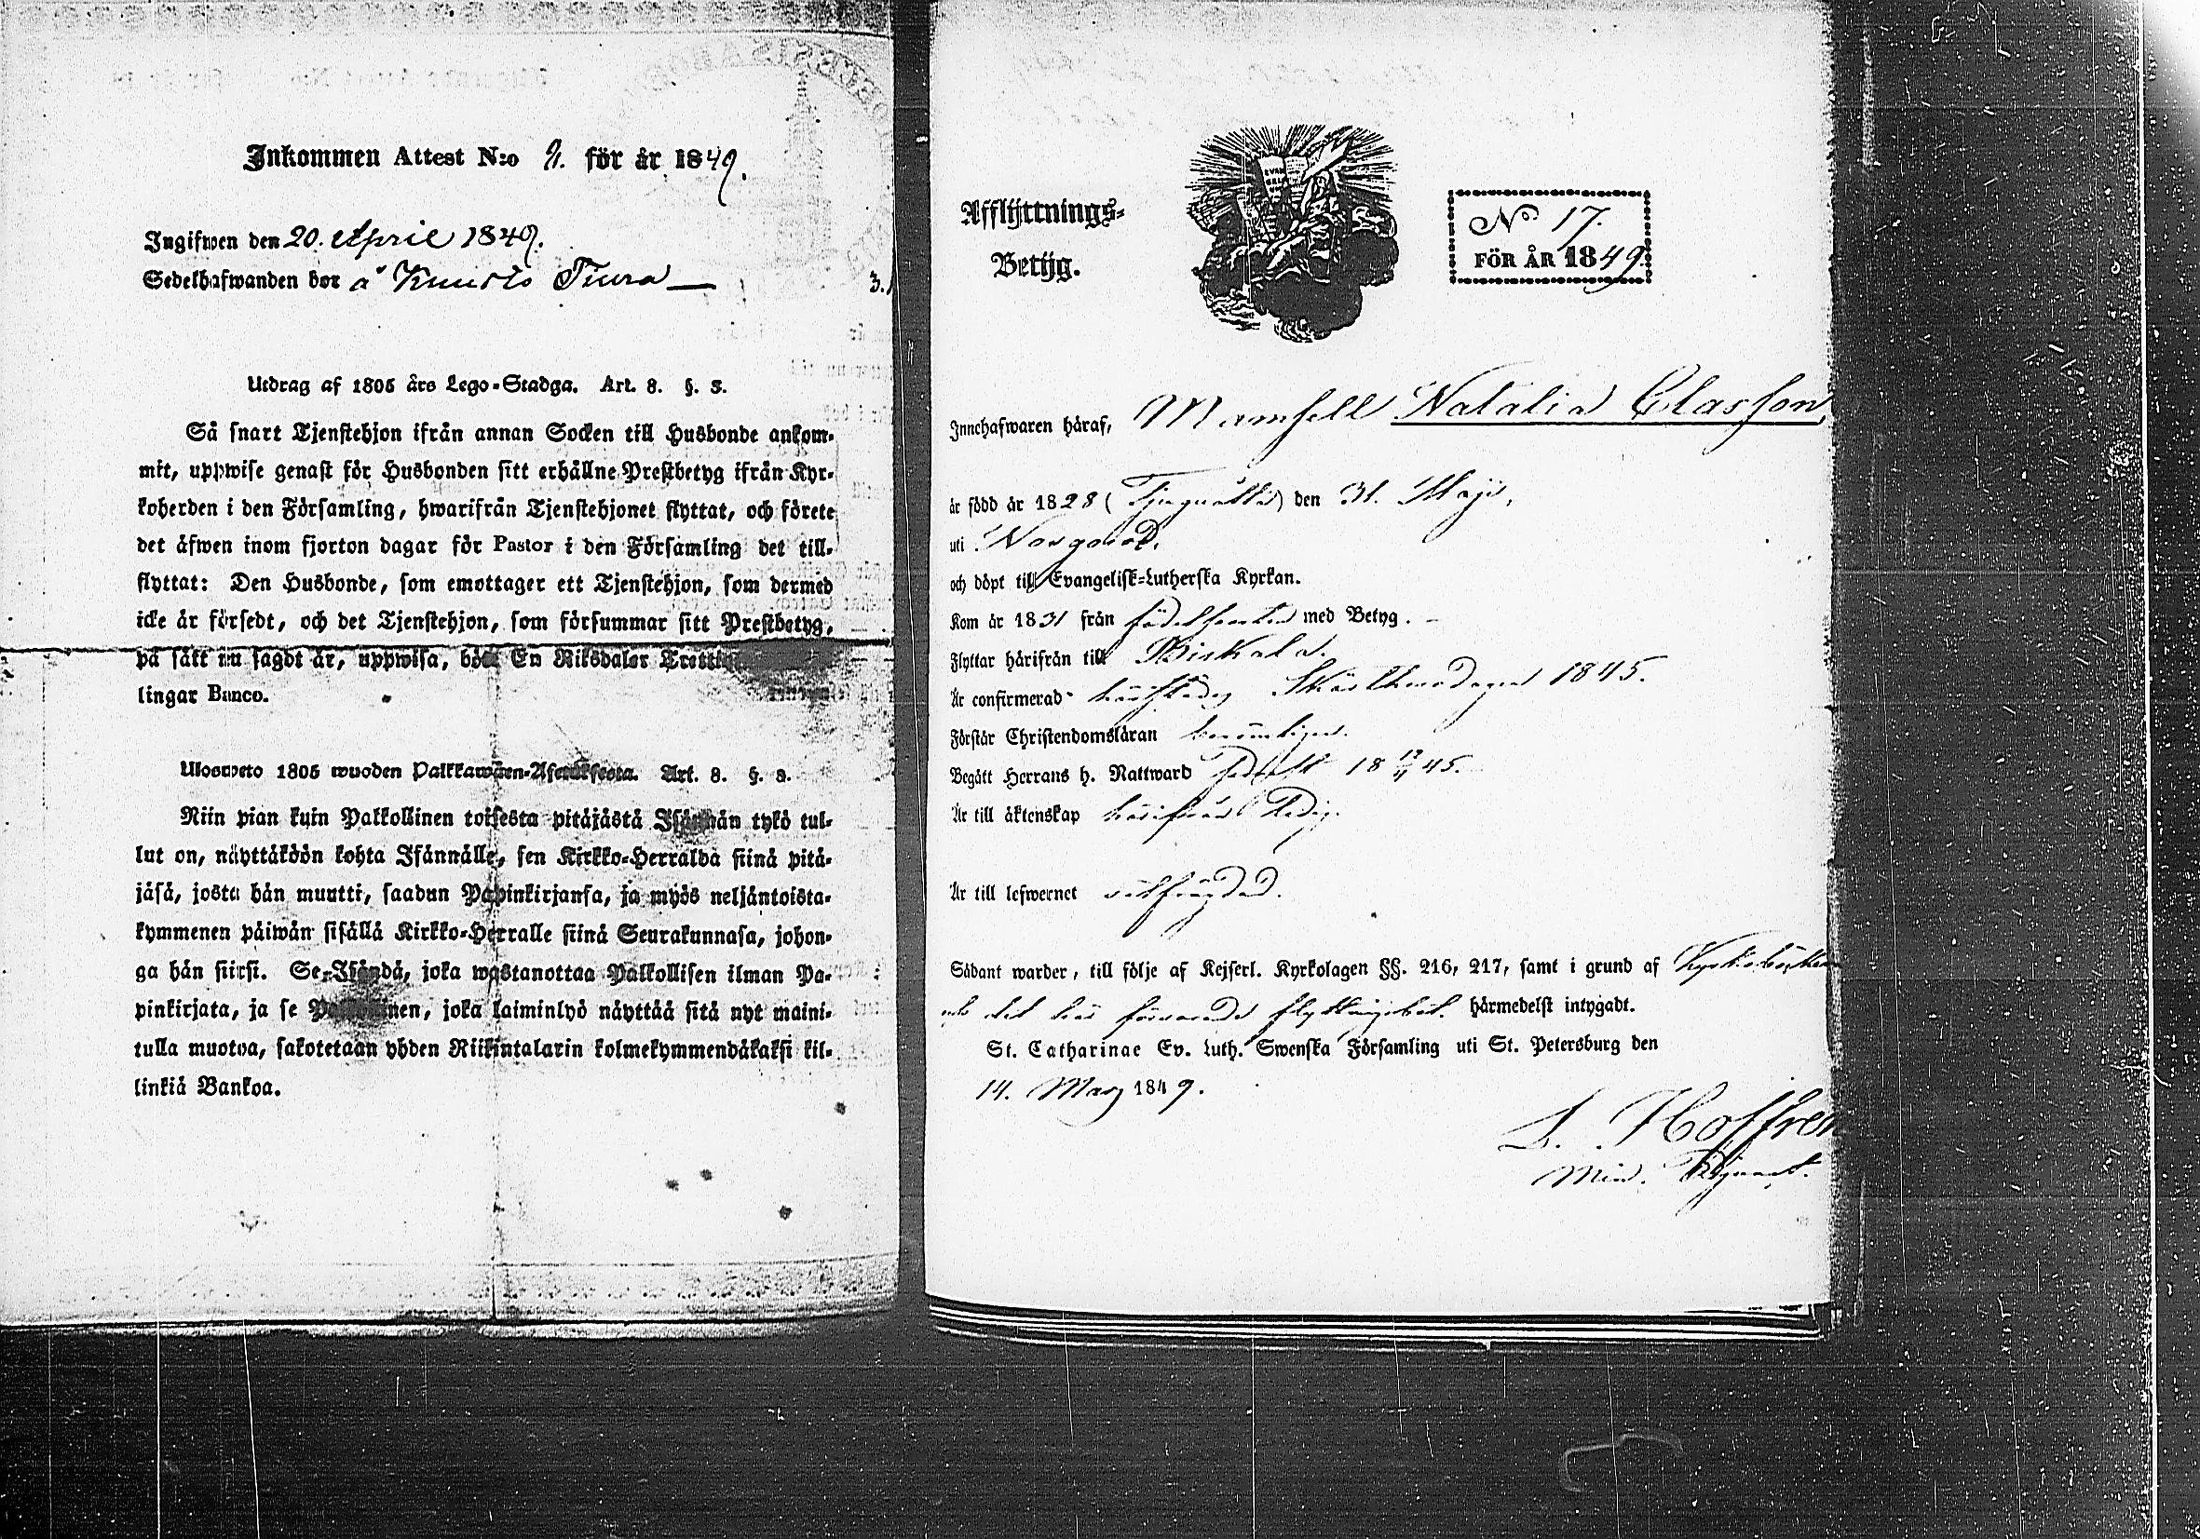 Inkommen Attest N:o 9. för år 1849.
Ingifwen den 20. April 1849.
Sedelhafwanden bor å Knusto Tiura
3.
Utdrag af 1805 års Lego-Stadga. Art. 8. §. 3.
Så snart Tjenstehjon ifrån annan Socken till Husbonde ankom-
mit, uppwise genast för Husbonden sitt erhållne Prestbetyg ifrån Kyr-
koherden i den Församling, hwarifrån Tjenstehjonet flyttat, och förete
det äfwen inom fjorton dagar för Pastor i den Församling det till-
flyttat: Den Husbonde, som emottager ett Tjenstehjon, som dermed
icke är försedt, och det Tjenstehjon, som försummar sitt Prestbetyg,
på sätt nu sagdt är, uppwisa, böte En Riksdaler
lingar Banco.
Ulosweto 1805 wuoden Palkkawäen-Asetuksesta. Art. 8. §. 3.
Niin pian kuin Palkollinen toisesta pitäjästä Isännän tykö tul-
lut on, näyttäköön kohta Isännälle, sen Kirkko-Herralda siinä pitä-
jäsä, josta hän muutti, saadun Papinkirjansa, ja myös neljäntoista-
kymmenen päiwän sisällä Kirkko-Herralle siinä Seurakunnasa, johon-
ga hän siirsi. Se Isändä, joka wastanottaa Palkollisen ilman Pa-
pinkirjata, ja se Palkollinen, joka laiminlyö näyttää sitä nyt maini-
tulla muotoa, sakotetaan yhden Riikintalarin kolmekymmendäkaksi kil-
linkiä Bankoa.
Afflyttnings-
Betyg.
No 17.
FÖR ÅR 1849.
Innehafwaren häraf, Mamsell Natalia Classon,
är född år 1828 (Tjuguåtta) den 31. Maji,
uti
och döpt till Evangelisk-Lutherska Kyrkan.
Kom år 1831 från födelseorten med Betyg.
Flyttar härifrån till Biskala.
Är confirmerad härstädes 1845.
Förstår Christendomsläran berömligen.
Begått Herrans h. Nattward sednast 18 45.
Är till äktenskap härifrån ledig.
Är till lefwernet välfrägdad.
Sådant warder, till följe af Kejserl. Kyrkolagen §§. 216, 217, samt i grund af Kyrkoboken
och det här förwarade flyttningsbet. härmedelst intygadt.
St. Catharinae Ev. Luth. Swenska Församling uti St. Petersburg den
14. Mars 1849.
L. Hoffren
Min. Adjunct.